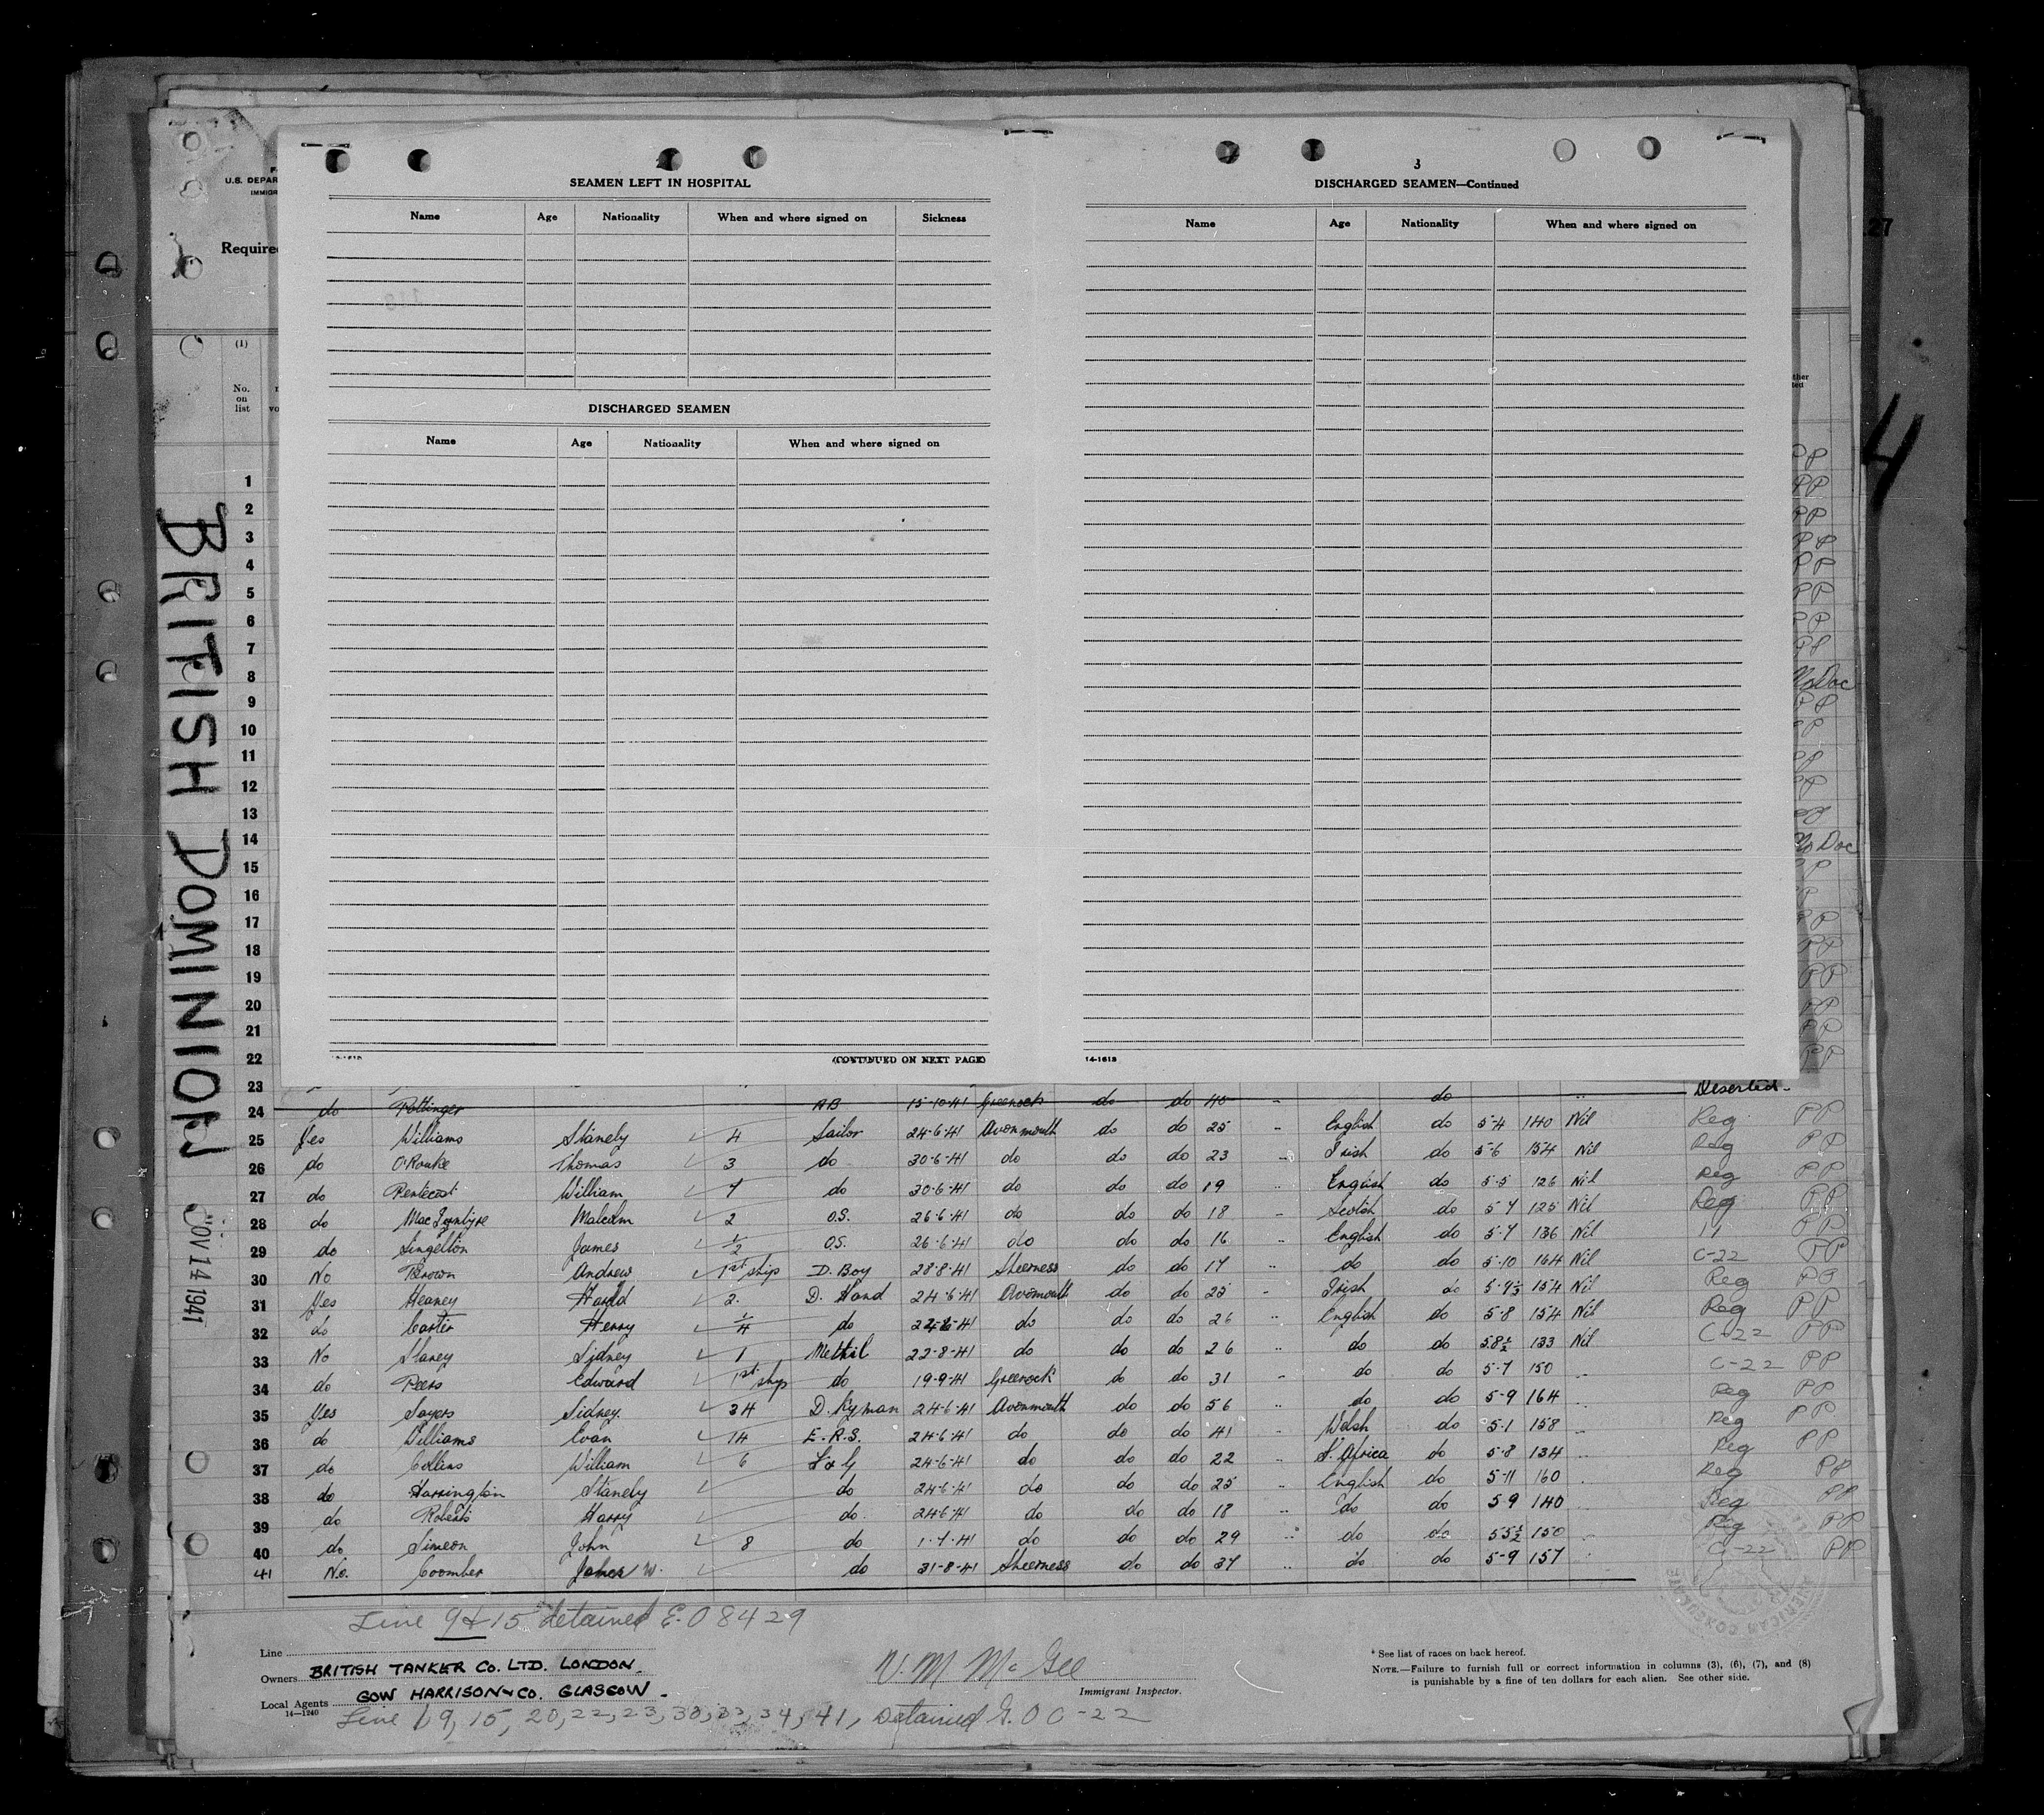 2
SEAMEN LEFT IN HOSPITAL
Name Age Nationality When and where signed on Sickness
DISCHARGED SEAMEN
Name Age Nationality When and where signed on
(CONTINUED ON NEXT PAGE)
3
DISCHARGED SEAMEN—Continued
Name Age Nationality When and where signed on
14-1613
U.S. DEPAR
IMMIGR
Require
27
4
(1)
No. on list
BRITISH DOMINION
NOV 14 1941
1 PP
2 PP
3 PP
4 PP
5 PP
6 PP
7 PP
8 PP
9 No Doc
10 PP
11 PP
12 PP
13 PP
14
15 No Doc
16 PP
17 PP
18 PP
19 PP
20 PP
21 PP
22 PP
23
Deserted.
24 do Pottinger AB 15-10-41 Greenock do do 40 " do "
25 Yes Williams Stanely 4 Sailor 24-6-41 Avonmouth do do 25 " English do 5-4 140 Nil Reg PP
26 do O'Rourke Thomas 3 do 30-6-41 do do do 23 " Irish do 5-6 154 Nil Reg PP
27 do Pentecost William 7 do 30-6-41 do do do 19 " English do 5-5 126 Nil Reg PP
28 do Malcolm 2 O.S. 26-6-41 do do do 18 " Scotish do 5-7 125 Nil Reg PP
29 do Singelton James ½ O.S. 26-6-41 do do do 16 " English do 5-7 136 Nil 11 PP
30 No Brown Andrew 1st ship D. Boy 28-8-41 Sheerness do do 17 " do do 5-10 164 Nil C-22 PP
31 Yes Heaney Harold 2 D. Hand 24-6-41 Avonmouth do do 25 " Irish do 5-9½ 154 Nil Reg PP
32 do Carter Henry ¼ do 24-6-41 do do do 26 " English do 5-8 154 Nil Reg PP
33 No Slaney Sidney 1 do 22-8-41 Methil do do 26 " do do 5-8½ 133 Nil C-22 PP
34 do Peers Edward 1st ship do 19-9-41 Greenock do do 31 " do do 5-7 150 " C-22 PP
35 Yes Sayers Sidney 34 D. Kyman 24-6-41 Avonmouth do do 56 " do do 5-9 164 " Reg PP
36 do Williams Evan 14 E.R.S. 24-6-41 do do do 41 " Welsh do 5-1 158 " Reg PP
37 do Collins William 6 F&G 24-6-41 do do do 22 " S. Africa do 5-8 134 Reg PP
38 do Harrington Stanely do 24-6-41 do do do 25 " English do 5-11 160 Reg PP
39 do Roberts Harry do 24-6-41 do do do 18 " do do 5-9 140 Reg PP
40 do Simeon John 8 do 1-7-41 do do do 29 " do do 5-5½ 150 Reg PP
41 No. Coomber James W. do 31-8-41 Sheerness do do 37 " do do 5-9 157 C-22 PP
Line 9 & 15 detained E.O 8429
Line
Owners BRITISH TANKER CO. LTD. LONDON.
Local Agents GOW HARRISON & CO. GLASGOW.
14—1240
V. M McGee
Immigrant Inspector.
* See list of races on back hereof.
NOTE.—Failure to furnish full or correct information in columns (3), (6), (7), and (8)
is punishable by a fine of ten dollars for each alien. See other side.
Line 1, 9, 15, 20, 22, 23, 30, 33, 34, 41, Detained G.O C-22
AMERICAN CONSULATE